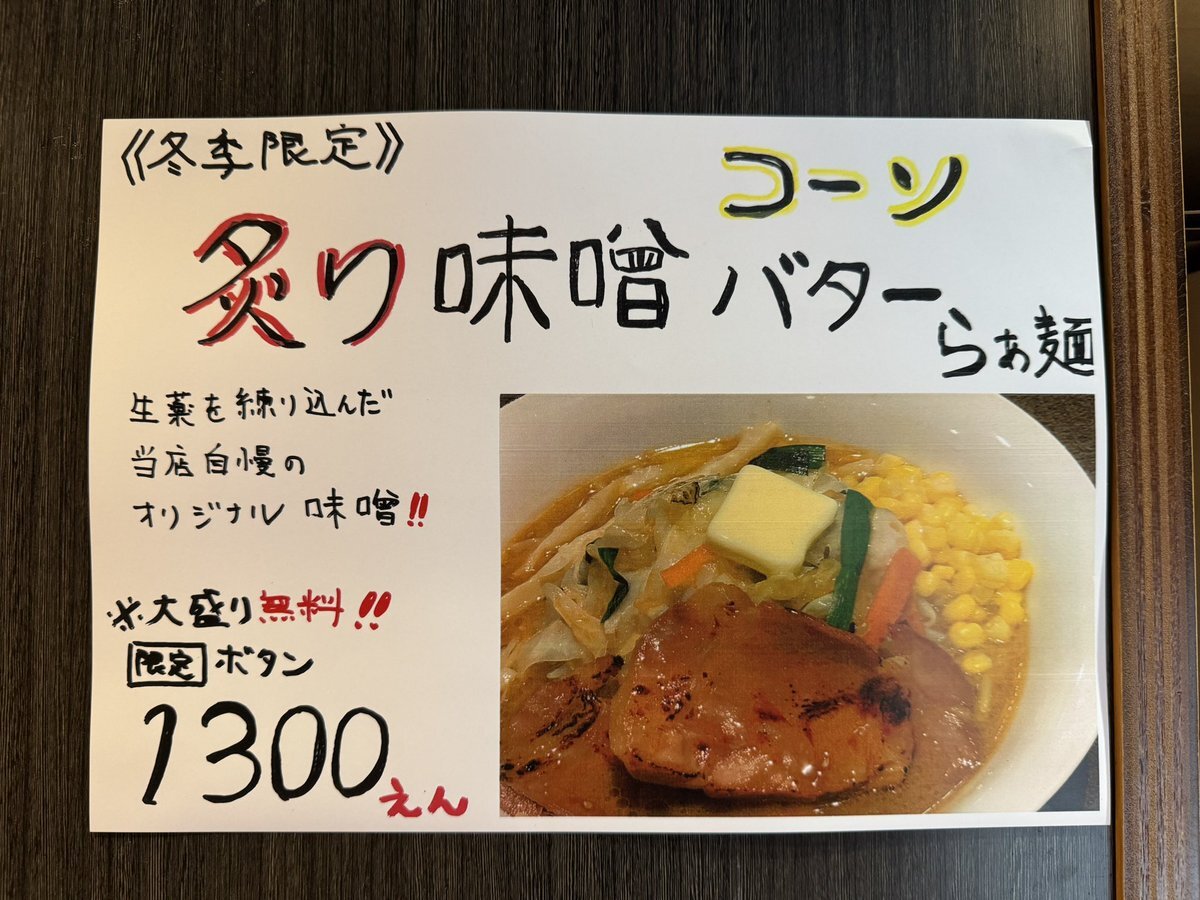 《冬季限定》
コーン
炙り味噌バターらぁ麺
生薬を練り込んだ
当店自慢の
オリジナル味噌!!
※大盛り無料!!
限定ボタン
1300えん